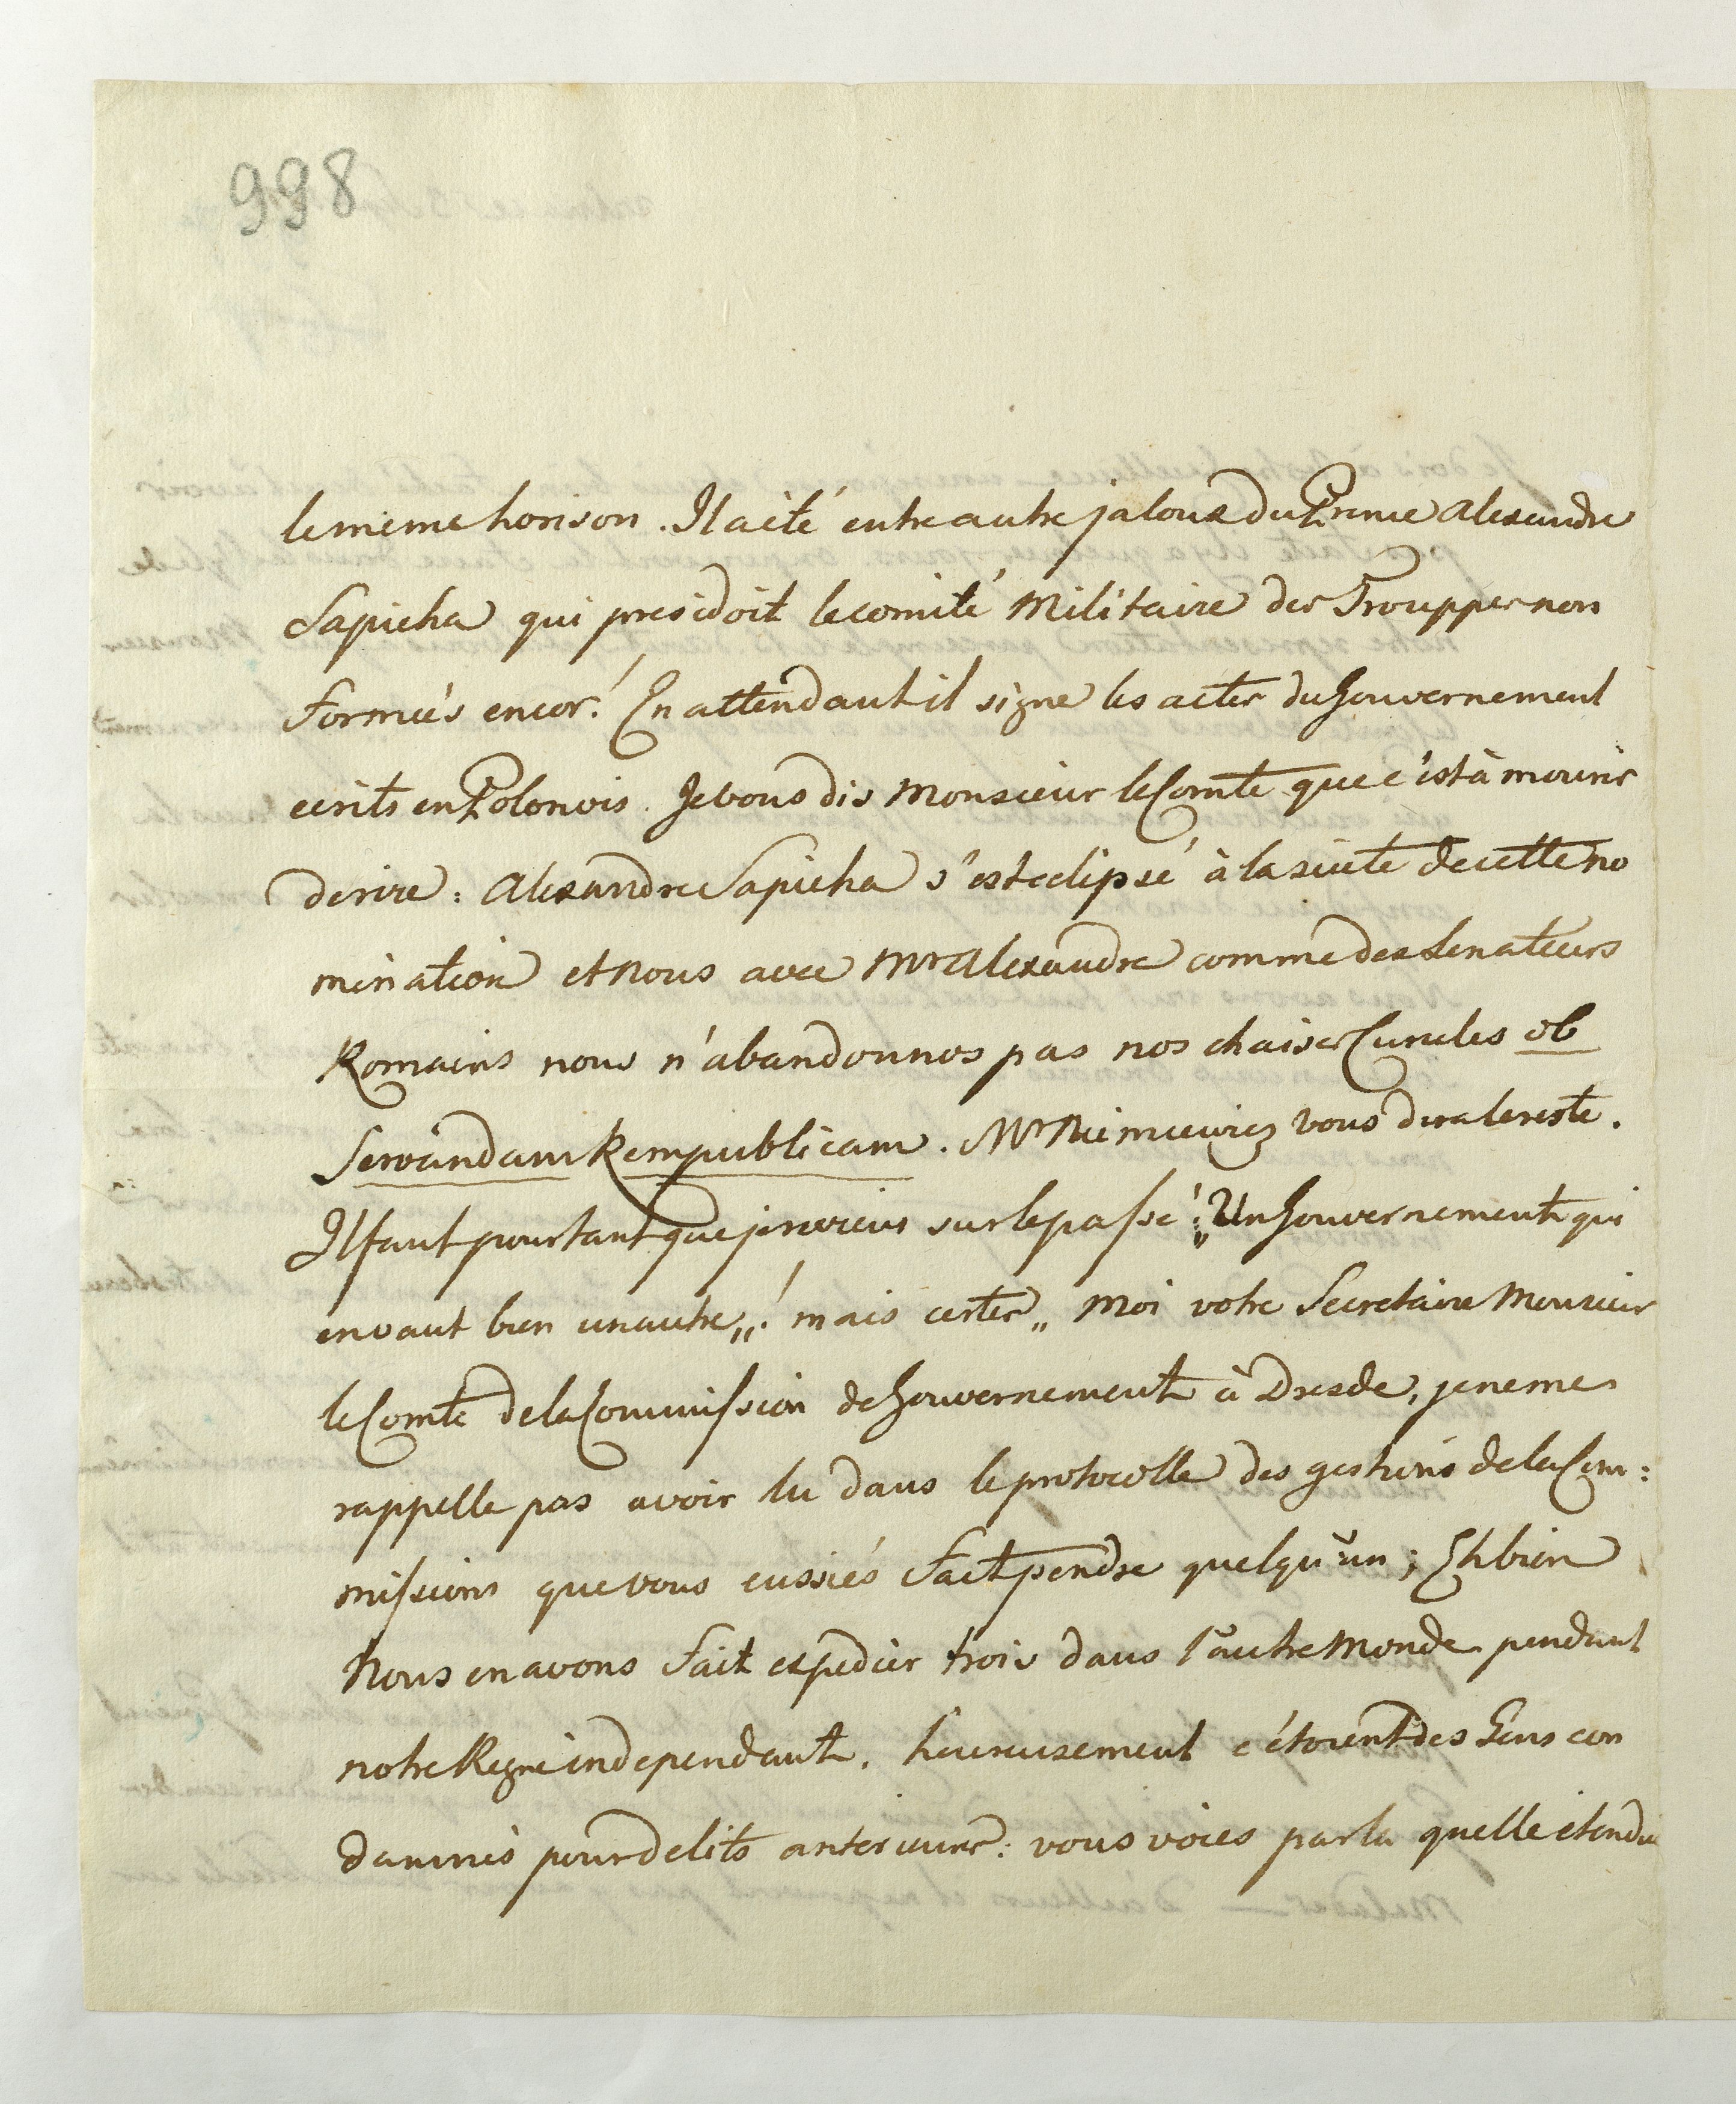 998
le même horison. Il a été entre autre jaloux du Prince Alexandre
Sapieha qui presidoit le comité Militaire des Trouppes non
formées encor! En attendant il signe les actes du Gouvernement
ecrits en Polonois. Je vous dis Monsieur le Comte que c'est à mourir
de rire: Alexandre Sapieha s'est eclipsé à la suite de cette no
mination et nous avec Mr Alexandre comme des Senateurs
Romains nous n'abandonnos pas nos chaises Curules ob
Servandam Rempublicam. Mr Niemcewicz vous dira le reste.
Il faut pourtant que je reviens sur le passé: „Un Gouvernement qui
en vaut bien un autre„! mais certes„ Moi votre Secretaire Monsieur
le Comte de la Commission de Gouvernement à Dresde, je ne me
rappelle pas avoir lu dans le protocolle des gestions de la Com:
missions que vous eussiés fait pendre quelqu'un; Eh bien
Nous en avons fait expedier trois dans l'autre Monde pendant
notre Regne independant. heureusement c'étoient des Gens con
damnés pour delits anterieurs: vous voies par la quelle etendue